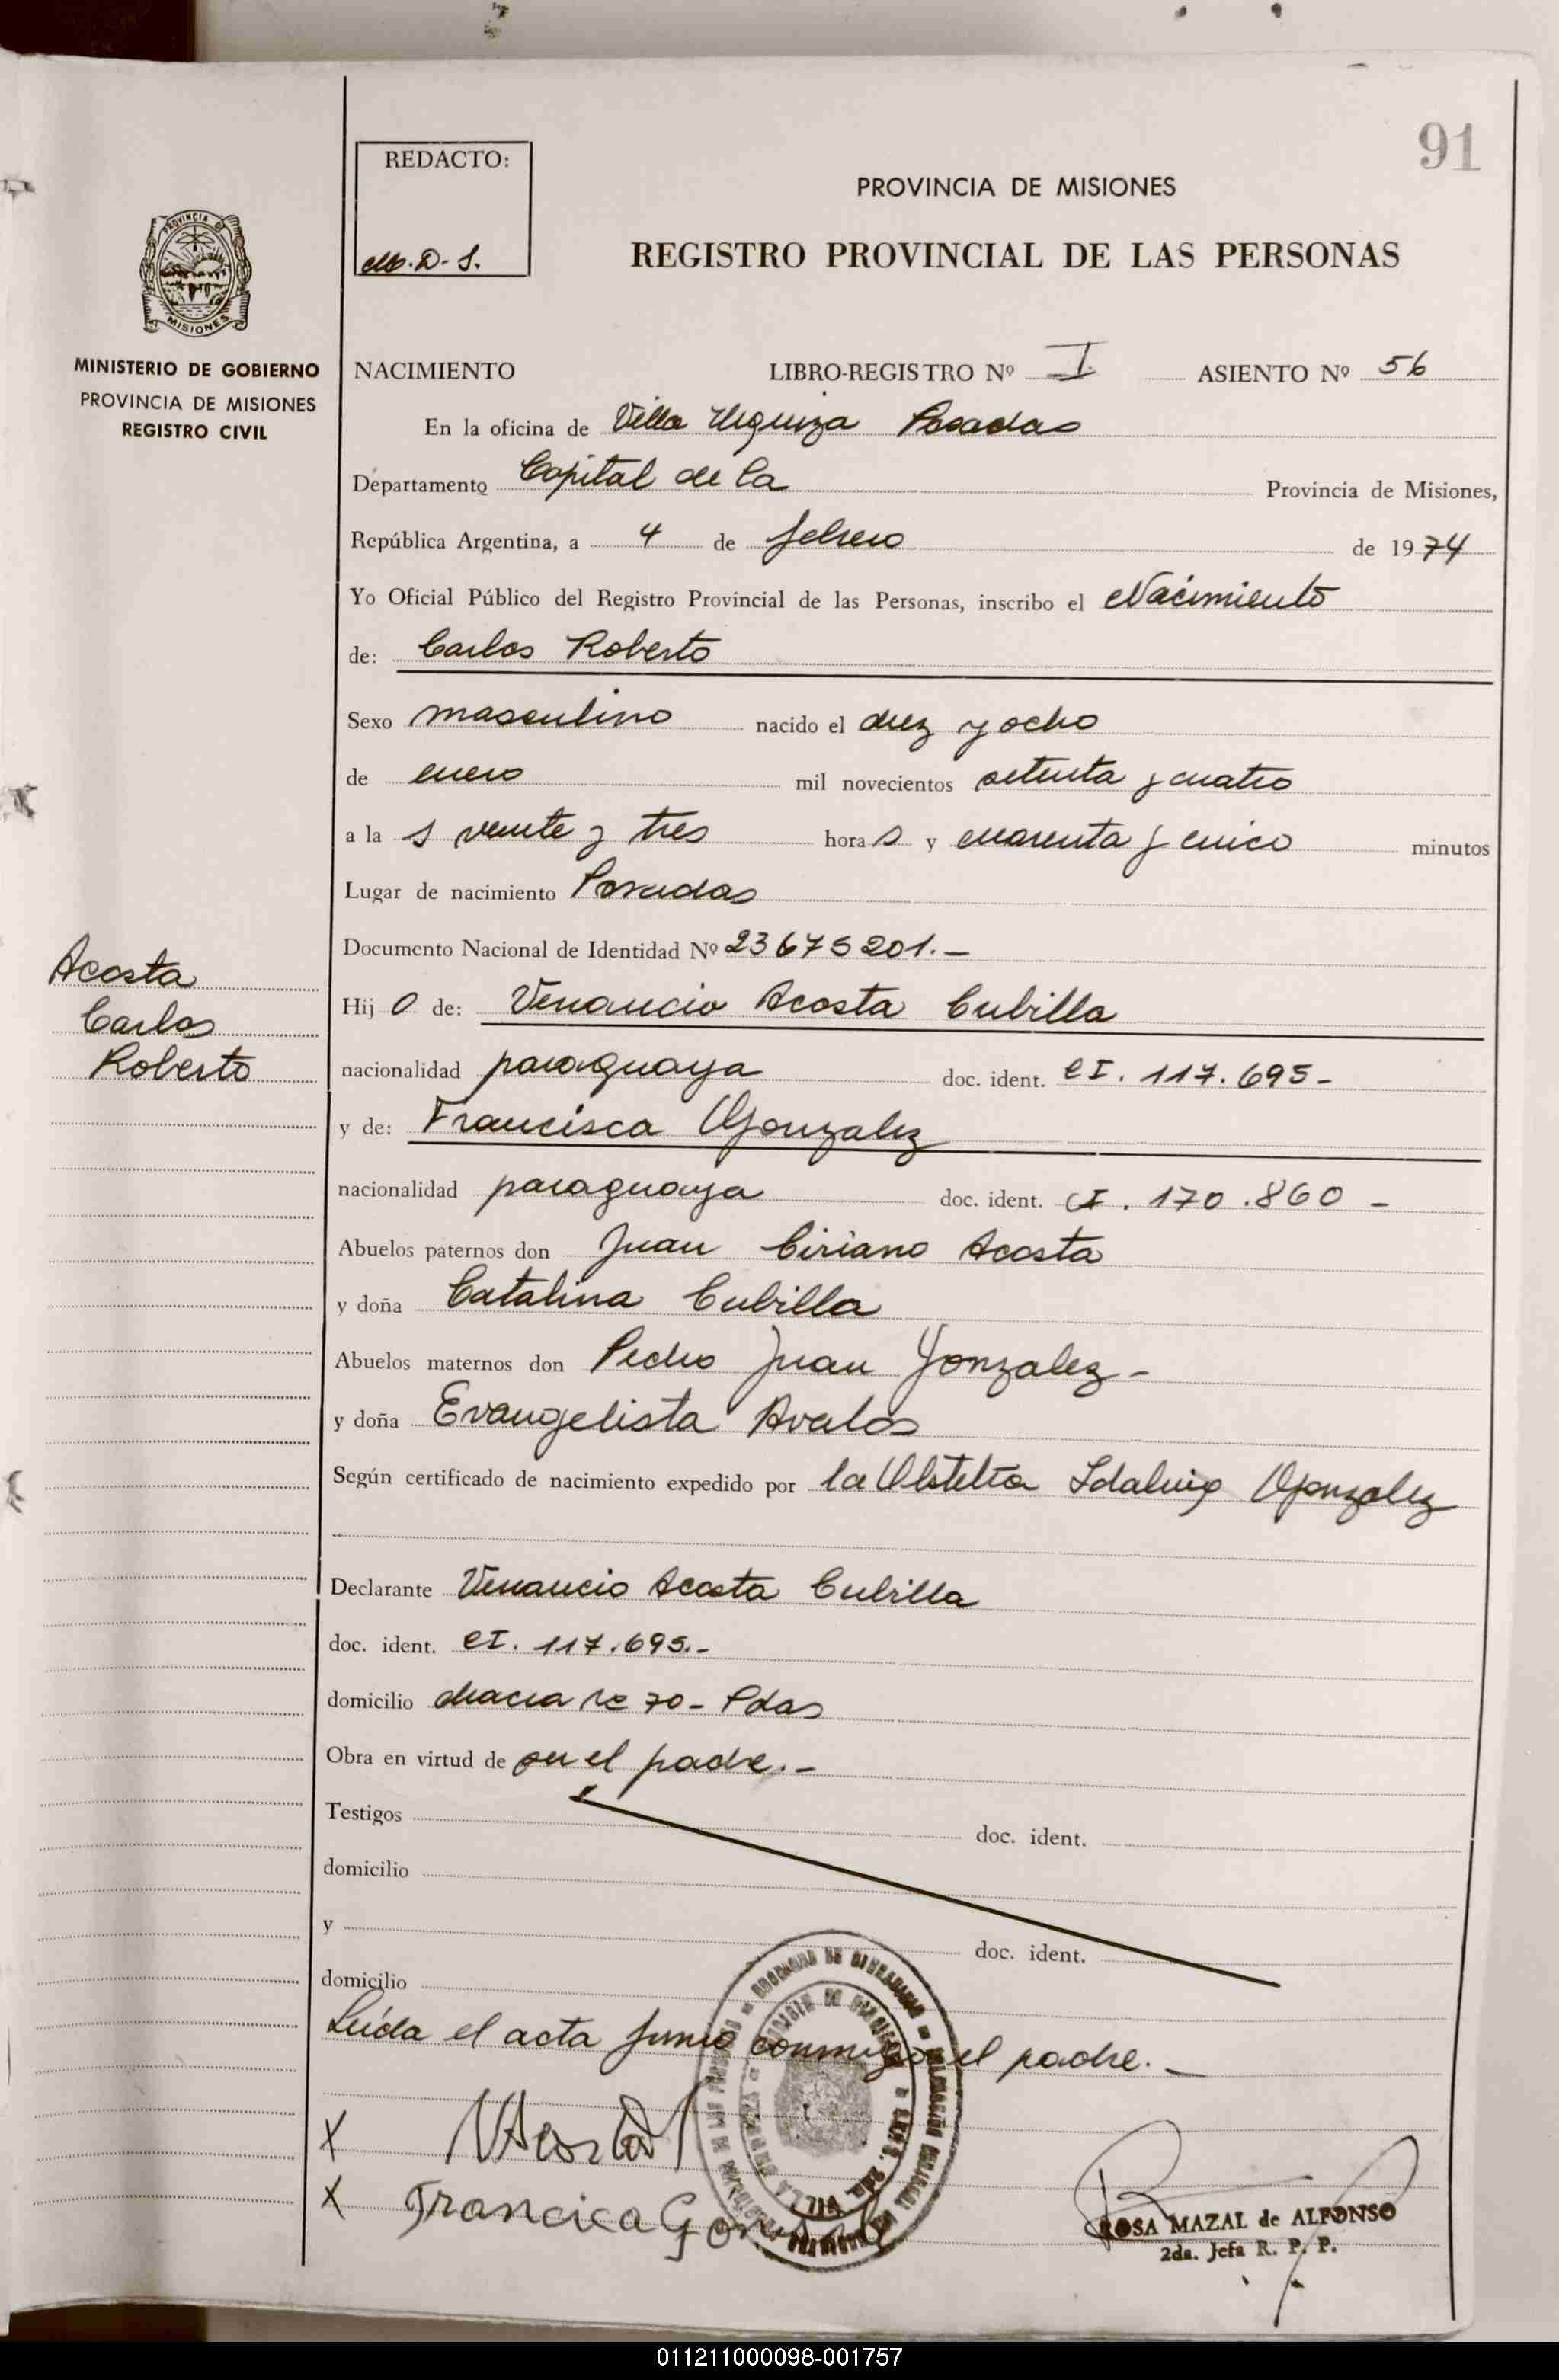 91
REDACTO:
M.D-S.
PROVINCIA DE MISIONES
REGISTRO PROVINCIAL DE LAS PERSONAS
MISIONES
MINISTERIO DE GOBIERNO
PROVINCIA DE MISIONES
REGISTRO CIVIL
NACIMIENTO LIBRO-REGISTRO Nº I ASIENTO Nº 56
En la oficina de Villa Urquiza Posadas
Departamento Capital de la Provincia de Misiones,
República Argentina, a 4 de febrero de 1974
Yo Oficial Público del Registro Provincial de las Personas, inscribo el Nacimiento
de: Carlos Roberto
Sexo masculino nacido el diez y ocho
de enero mil novecientos setenta y cuatro
a la s veinte y tres hora s y cuarenta y cinco minutos
Lugar de nacimiento Posadas
Documento Nacional de Identidad Nº 23675201.-
Acosta
Carlos
Roberto
Hij o de: Venancio Acosta Cubilla
nacionalidad paraguaya doc. ident. CI. 117.695-
y de: Francisca Gonzalez
nacionalidad paraguaya doc. ident. CI. 170.860-
Abuelos paternos don Juan Ciriano Acosta
y doña Catalina Cubilla
Abuelos maternos don Pedro Juan Gonzalez-
y doña Evangelista Avalos
Según certificado de nacimiento expedido por la Gonzalez
Declarante Venancio Acosta Cubilla
doc. ident. CI. 117.695.-
domicilio chacra Nº 70- Pdas
Obra en virtud de ser el padre.-
Testigos doc. ident.
domicilio
y doc. ident.
domicilio
Leída el acta firma conmigo el padre.-
X VAcosta
X Francisca Gonzalez
ROSA MAZAL de ALFONSO
2da. Jefa R. P. P.
011211000098-001757